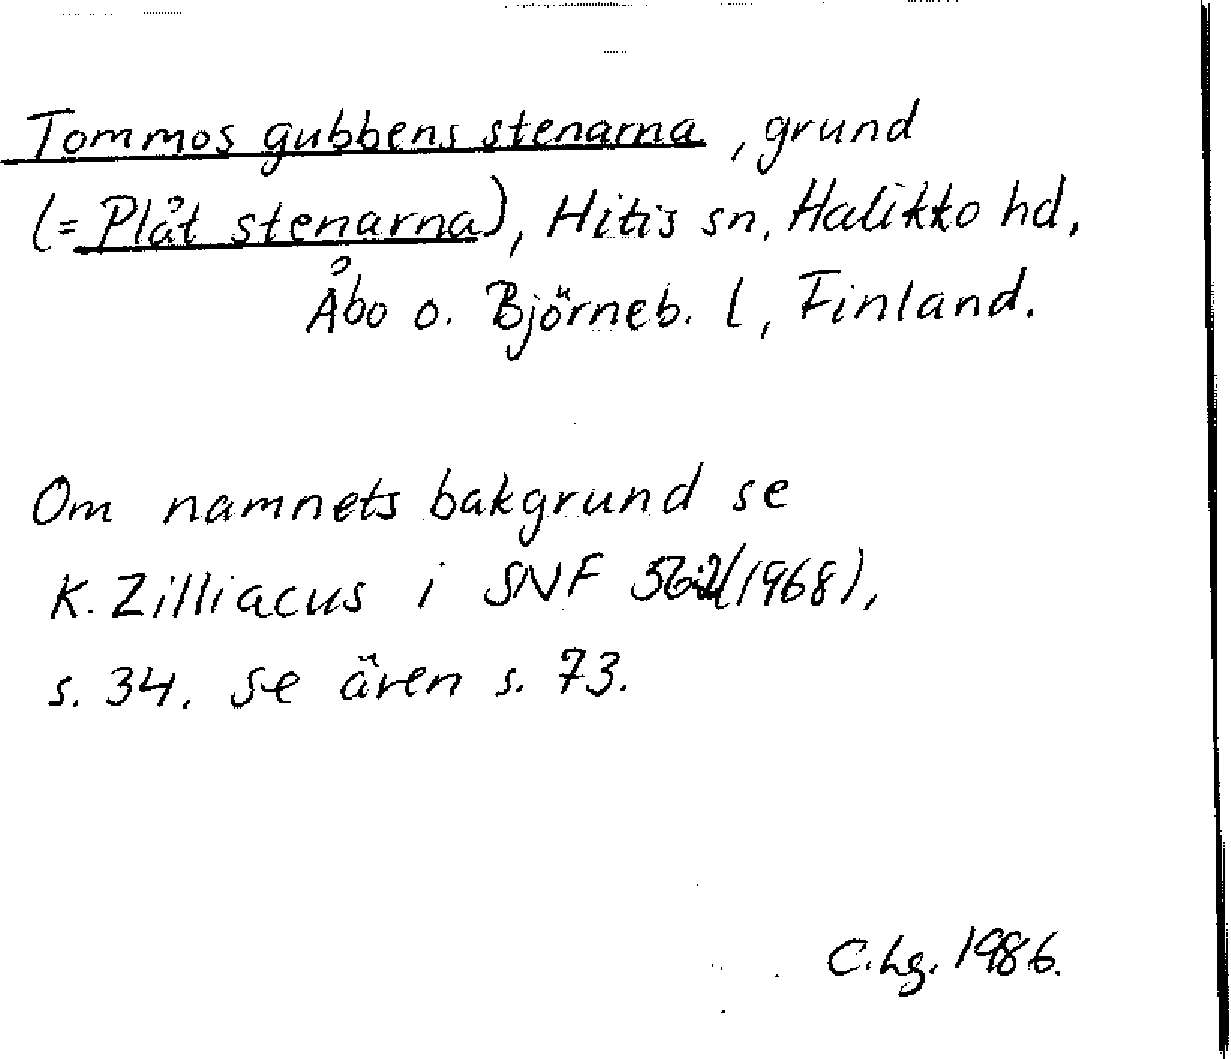 Tommos gubbens stenarna, grund
(= Plåt stenarna), Hitis sn, Halikko hd,
Åbo o. Björneb. l, Finland.
Om namnets bakgrund se
K. Zilliacus i SNF 56:2(1968),
s. 34. Se även s. 73.
C.Lg. 1986.